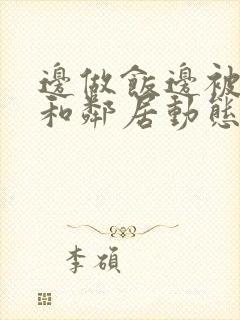 邊做飯邊被
和鄰居動態
李碩